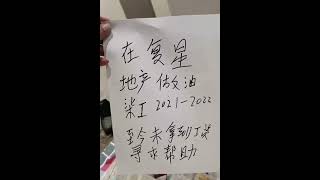 在复星
地产做油
柒工 2021-2022
至今未拿到工资
寻求帮助